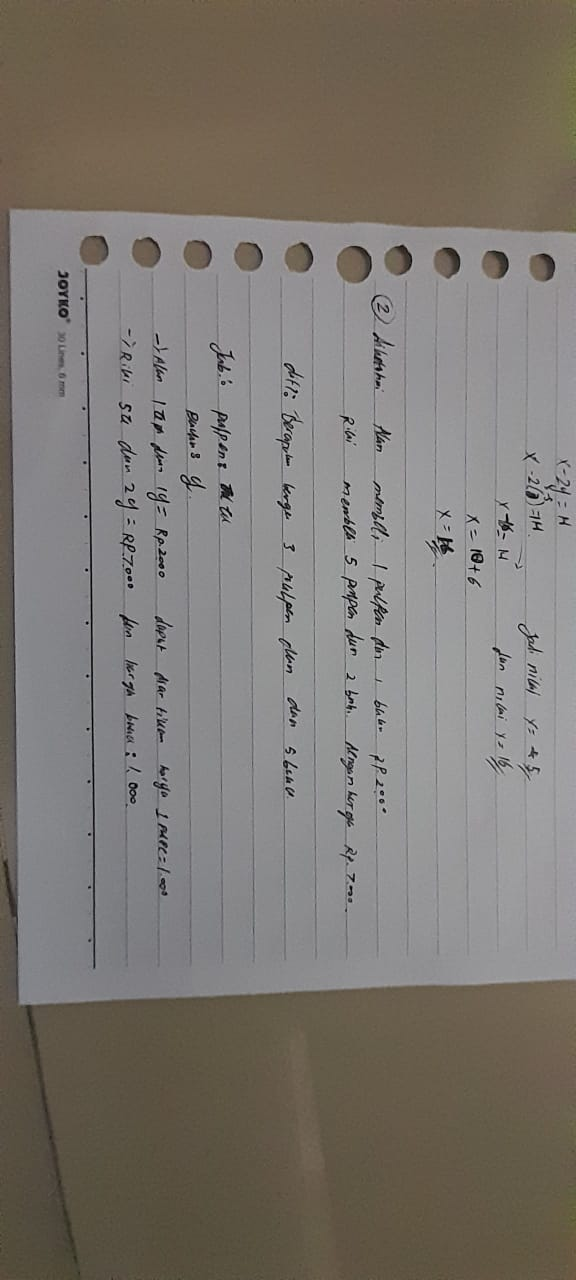 x-2y = 14
x-2(3) = 14. Jadi nilai y =
x - = 14 dan nilai y = 16
x = 10+6
x = 16
② diketahui Alan membeli 1 pulpen dan 1 buku Rp.2000
Riki membeli 5 pulpen dan 2 buku dengan harga Rp.7.000.
dit: Berapa harga 3 pulpen dan 5 buku
Jwb: pulpen:
y.
-> Alan 1 dan 1y = Rp.2000 dapat diartikan harga 1 = 1.000
-> Riki 5 dan 2y = Rp.7.000 dan harga buku : 1.000.
JOYKO® 30 Lines, 6 mm